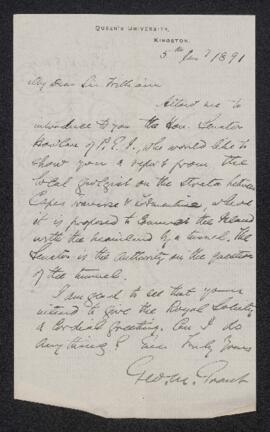 QUEEN'S UNIVERSITY,
KINGSTON.
5th Jany 1891
My Dear Sir William
Allow me to
introduce to you the Hon. Senator
Howlan of P.E.I., who would like to
show you a report from the
local geologist on the strata between
Capes Traverse & Tormentine, where
it is proposed to connect the Island
with the mainland by a tunnel. The
Senator is the authority on the question
of the tunnel.
I am glad to see that yours
intend to give the Royal Society
a cordial greeting. Can I do
anything? Yours truly
Geo. M. Grant